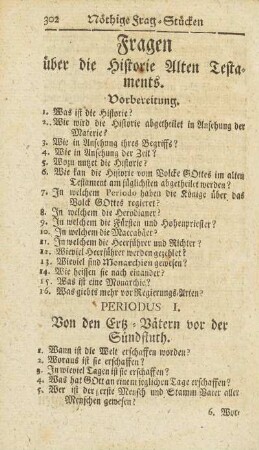 302 Nöthige Frag-Stücken
Fragen
über die Historie Alten Testa-
ments.
Vorbereitung.
1. Was ist die Historie?
2. Wie wird die Historie abgetheilet in Ansehung der
Materie?
3. Wie in Ansehung ihres Begriffs?
4. Wie in Ansehung der Zeit?
5. Wozu nutzet die Historie?
6. Wie kan die Historie vom Volcke GOttes im alten
Testament am füglichsten abgetheilet werden?
7. In welchem Periodo haben die Könige über das
Volck GOttes regieret?
8. In welchem die Herodianer?
9. In welchem die Fürsten und Hohenpriester?
10. In welchem die Maccabäer?
11. In welchem die Heerführer und Richter?
12. Wieviel Heerführer werden gezehlet?
13. Wieviel sind Monarchien gewesen?
14. Wie heissen sie nach einander?
15. Was ist eine Monarchie?
16. Was giebts mehr vor Regierungs-Arten?
PERIODUS I.
Von den Ertz-Vätern vor der
Sündfluth.
1. Wann ist die Welt erschaffen worden?
2. Woraus ist sie erschaffen?
3. In wieviel Tagen ist sie erschaffen?
4. Was hat GOtt an einem jeglichen Tage erschaffen?
5. Wer ist der erste Mensch und Stamm-Vater aller
Menschen gewesen?
6. Wor-